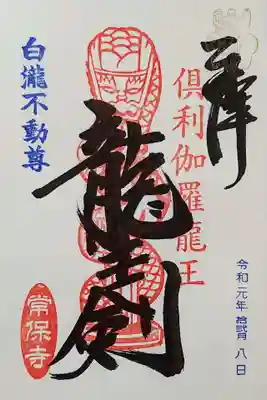 倶利伽羅龍王
令和元年拾弐月八日
龍王剣
白瀧不動尊
常保寺